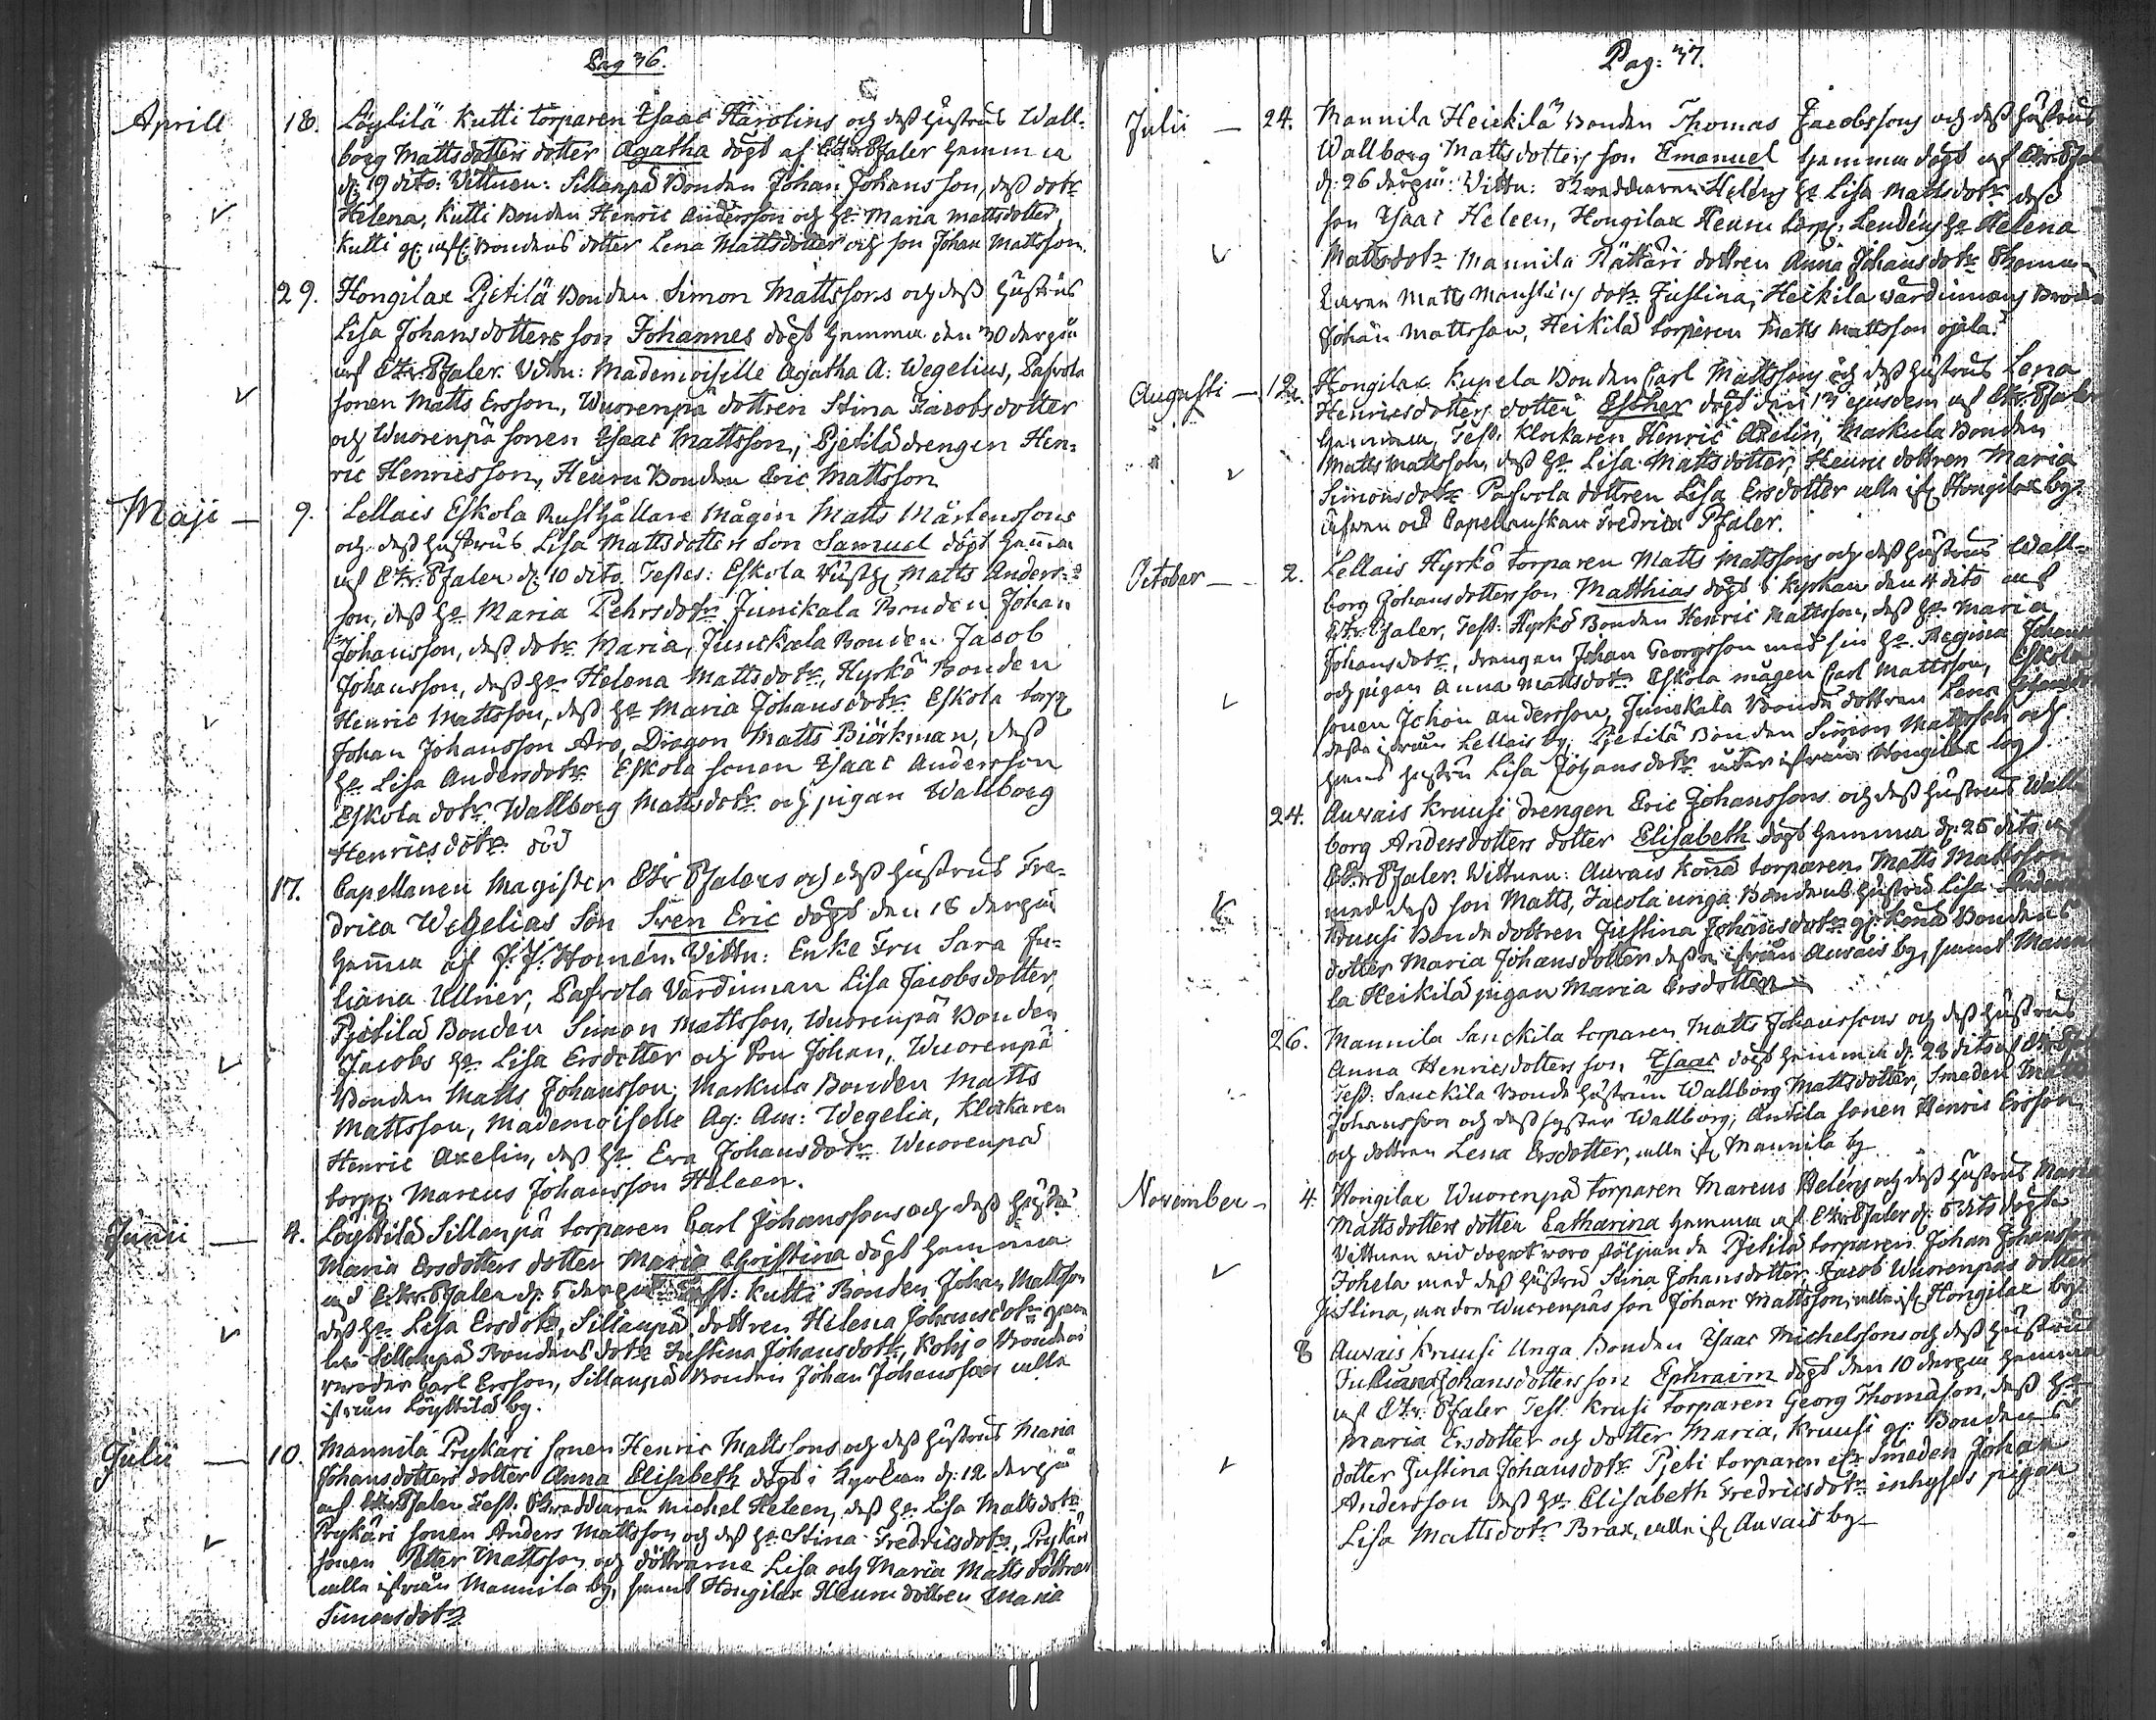 Pag 36.
Aprill 18. Löytilä Kutti torparen Isaac Karolins och dess hustrus Wall-
borg Mattsdotters dotter Agatha döpt af Chr: Pfaler hemma
d: 19 dito: Vittnen: Sillanpä Bonden Johan Johansson, dess dotr
Helena, Kutti Bonden Henric Andersson och h: Maria Mattsdotter,
Kutti Bondens dotter Lena Mattsdotter och son Johan Mattsson.
29. Hongilax Pjetilä Bonden Simon Mattssons och dess hustrus
Lisa Johansdotters son Johannes döpt hemma den 30 derpå
af Chr. Pfaler. Vittn: Mademoiselle Agatha A: Wegelius, Pafvola
sonen Matts Ersson, Wuorenpä dottren Stina Jacobsdotter
och Wuorenpä sonen Isaac Mattsson, Pjetilä drengen Hen-
ric Henricsson, Heuru Bonden Eric Mattsson
Maji — 9. Lellais Eskola Rusthållare mågen Matts Mårtenssons
och dess hustrus Lisa Mattsdotters Son Samuel döpt hemma
af Chr. Pfaler d: 10 dito. Testes: Eskola Rusth: Matts Anders-
son, dess h: Maria Pehrsdotr Junikala Bonden Johan
Johansson, dess dotr Maria, Junickala Bonden Jacob
Johansson, dess h: Helena Mattsdotr, Hyrkö Bonden
Henric Mattsson, dess h: Maria Johansdotr Eskola torp:
Johan Johansson Aro, Dragon Matts Biörkman, dess
h: Lisa Andersdotr Eskola sonen Isaac Andersson
Eskola dotr Wallborg Mattsdotr och pigan Wallborg
Henricsdotr
17. Capellanen Magister Chr Pfalers och dess hustrus Fre-
drica Wegelias Son Sven Eric döpt den 18 derpå
hemma af J: J: Homén. Vittn: Enke Fru Sara Ju-
liana Ullner, Pafvola Värdinnan Lisa Jacobsdotter,
Pjetilä Bonden Simon Mattsson, Wuorenpä Bonden
Jacobs h: Lisa Ersdotter och son Johan, Wuorenpä
Bonden Matts Johansson, Markula Bonden Matts
Mattsson, Mademoiselle Ag: Am: Wegelia, Klockaren
Henric Axelin, dess h: Eva Johansdotr Wuorenpä
torp: Marcus Johansson Heleen.
Junii — 4. Löyttilä Sillanpä torparen Carl Johanssons och dess hustrus
Maria Ersdotters dotter Maria Christina döpt hemma
af Chr. Pfaler d: 5 derpå Test: Kutti Bonden Johan Mattsson
dess h: Lisa Ersdotr, Sillanpä dottren Helena Johansdotr
Sillanpä Bondens dotr Justina Johansdotr, Kohjo Bondens
broder Carl Ersson, Sillanpä Bonden Johan Johansson alla
ifrån Löyttilä by.
Julii — 10. Mannila Prykäri sonen Henric Mattssons och dess hustrus Maria
Johansdotters dotter Anna Elisabeth döpt i Kyrkan d: 12 derpå
af Chr Pfaler Test. Skräddaren Michel Heleen, dess h: Lisa Mattsdotr
Prykäri sonen Anders Mattsson och dess h: Stina Fredricsdotr, Prykäri
sonen Petter Mattsson och döttrarne Lisa och Maria Matts döttrar
alla ifrån Mannila by, samt Hongilax Heuru dottren Maria
Simonsdotr
Pag: 37.
Julii — 24. Mannila Heickilä Bonden Thomas Jacobssons och dess hustrus
Wallborg Mattsdotters son Emanuel hemma döpt af Chr. Pfaler
d: 26 derpå: Vittn: Skräddaren Heléns h: Lisa Mattsdotr dess
son Isaac Heleen, Hongilax Heuru torp: Lendéns h: Helena
Mattsdotr Mannila Rättäri dottren Anna Johansdotr
Matts dotr Justina, Heikila värdinnans Broder
Johan Mattsson, Heikilä torparen Matts Mattsson Ojala.
Augusti — 12. Hongilax Kupela Bonden Carl Mattssons och dess hustrus Lena
Henricsdotters dotter Esther döpt den 13 ejusdem af Chr. Pfaler
hemma, Test. Klockaren Henric Axelin, Markula Bonden
Matts Mattsson, dess h: Lisa Mattsdotter, Heuru dottren Maria
Simonsdotr Pafvola dottren Lisa Ersdotter alla if: Hongilax by
äfven och Capellanskan Fredrica Pfaler.
October — 2. Lellais Hyrkö torparen Matts Mattssons och dess hustrus Wall-
borg Johansdotters son Matthias döpt i kyrkan den 4 dito af
Chr. Pfaler, Test: Hyrkö Bonden Henric Mattsson, dess h: Maria
Johansdotr, drengen Johan Georgsson med sin h: Regina Johans
och pigan Anna Mattsdotr Eskola mågen Carl Mattsson, Eskola
sonen Johan Andersson, Junickala Bonde dottren Lena
desse ifrån Lellais by, Pjetilä Bonden Simon Mattsson och
hans hustru Lisa Johansdotr ifrån Hongilax by
24. Auvais Kruusi drengen Eric Johanssons och dess hustrus Wall-
borg Andersdotters dotter Elisabeth döpt hemma d: 25 dito af
Chr Pfaler. Vittnen: Auvais Kona torparen Matts Mattsson
med dess son Matts, Jacola unga Bondens hustru Lisa
Kruusi Bonde dottren Justina Johansdotr Kona Bondens
dotter Maria Johansdotter desse ifrån Auvais by, samt Manni-
la Heikilä pigan Maria Ersdotter
26. Mannila Sanckila torparen Matts Johanssons och dess hustrus
Anna Henricsdotters son Isaac döpt hemma d: 28 dito af Chr Pf
Test: Sanckila Bonde hustrun Wallborg Mattsdotter, Smeden Matts
Johansson och dess syster Wallborg, Antila sonen Henric Ersson
och dottren Lena Ersdotter, alla if: Mannila by
November — 4. Hongilax Wuorenpä torparen Marcus Heléns och dess hustrus Maria
Mattsdotters dotter Catharina hemma af Chr Pfaler d: 5 dito döpt
Vittnen vid dopet woro följande Pjetilä torparen Johan Johansson
Tohela med dess hustru Stina Johansdotter, Jacob Wuorenpäs dotter
Justina, Wuorenpäs son Johan Mattsson, alla if: Hongilax by
8 Auvais Kruusi Unga Bonden Isaac Michelssons och dess hustrus
Juliana Johansdotters son Ephraim döpt den 10 derpå hemma
af Chr. Pfaler Test. Krusi torparen Georg Thomasson, dess h:
Maria Ersdotter och dotter Maria, Kruusi Bondens
dotter Justina Johansdotr Pjeti torparen Smeden Johan
Andersson dess h: Elisabeth Fredricsdotr inhyses pigan
Lisa Mattsdotr Brax, alla if: Auvais by